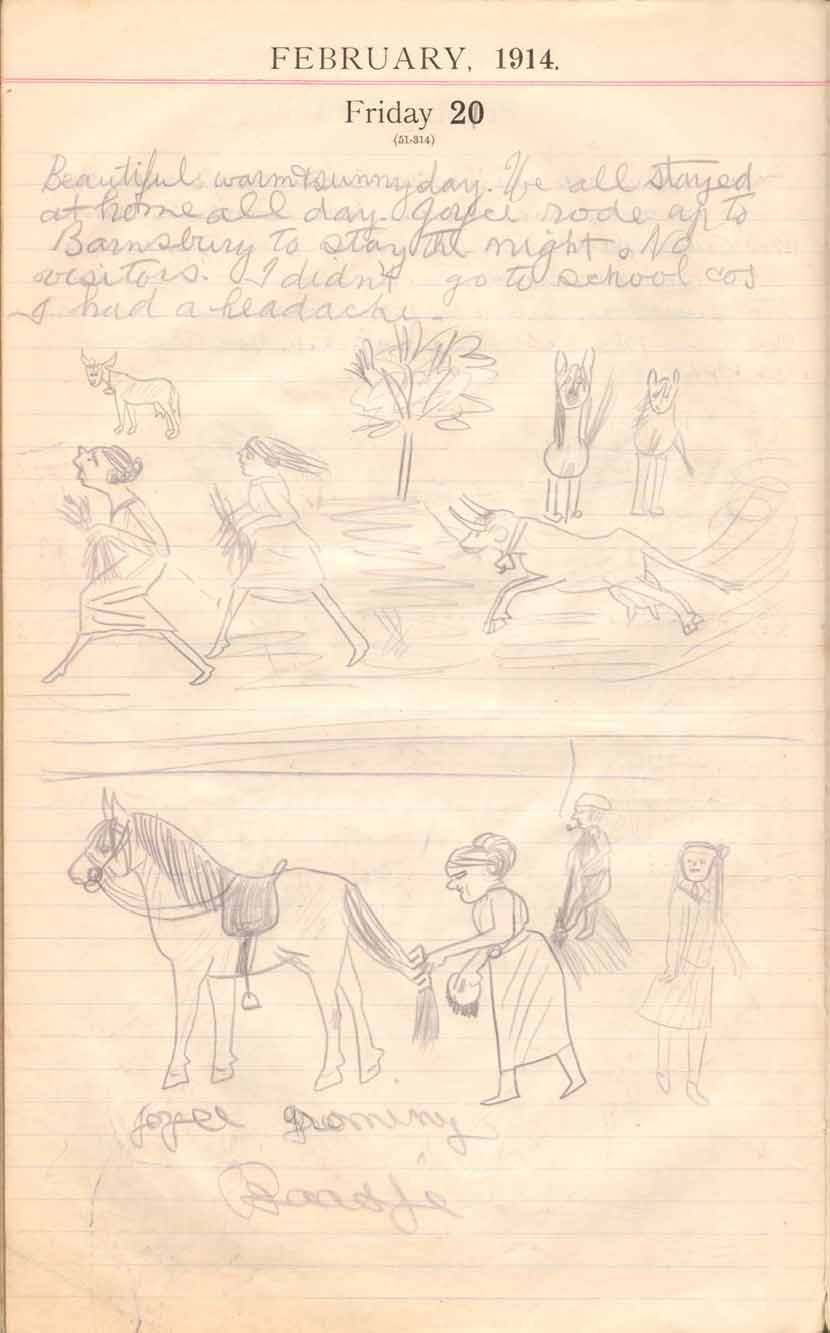 FEBRUARY, 1914.
Friday 20
(51-314)
Beautiful warm & sunny day. We all stayed
at home all day. Joyce rode up to
Barnsbury to stay the night. No
visitors. I didn't go to school cos
I had a headache.
Joyce groming